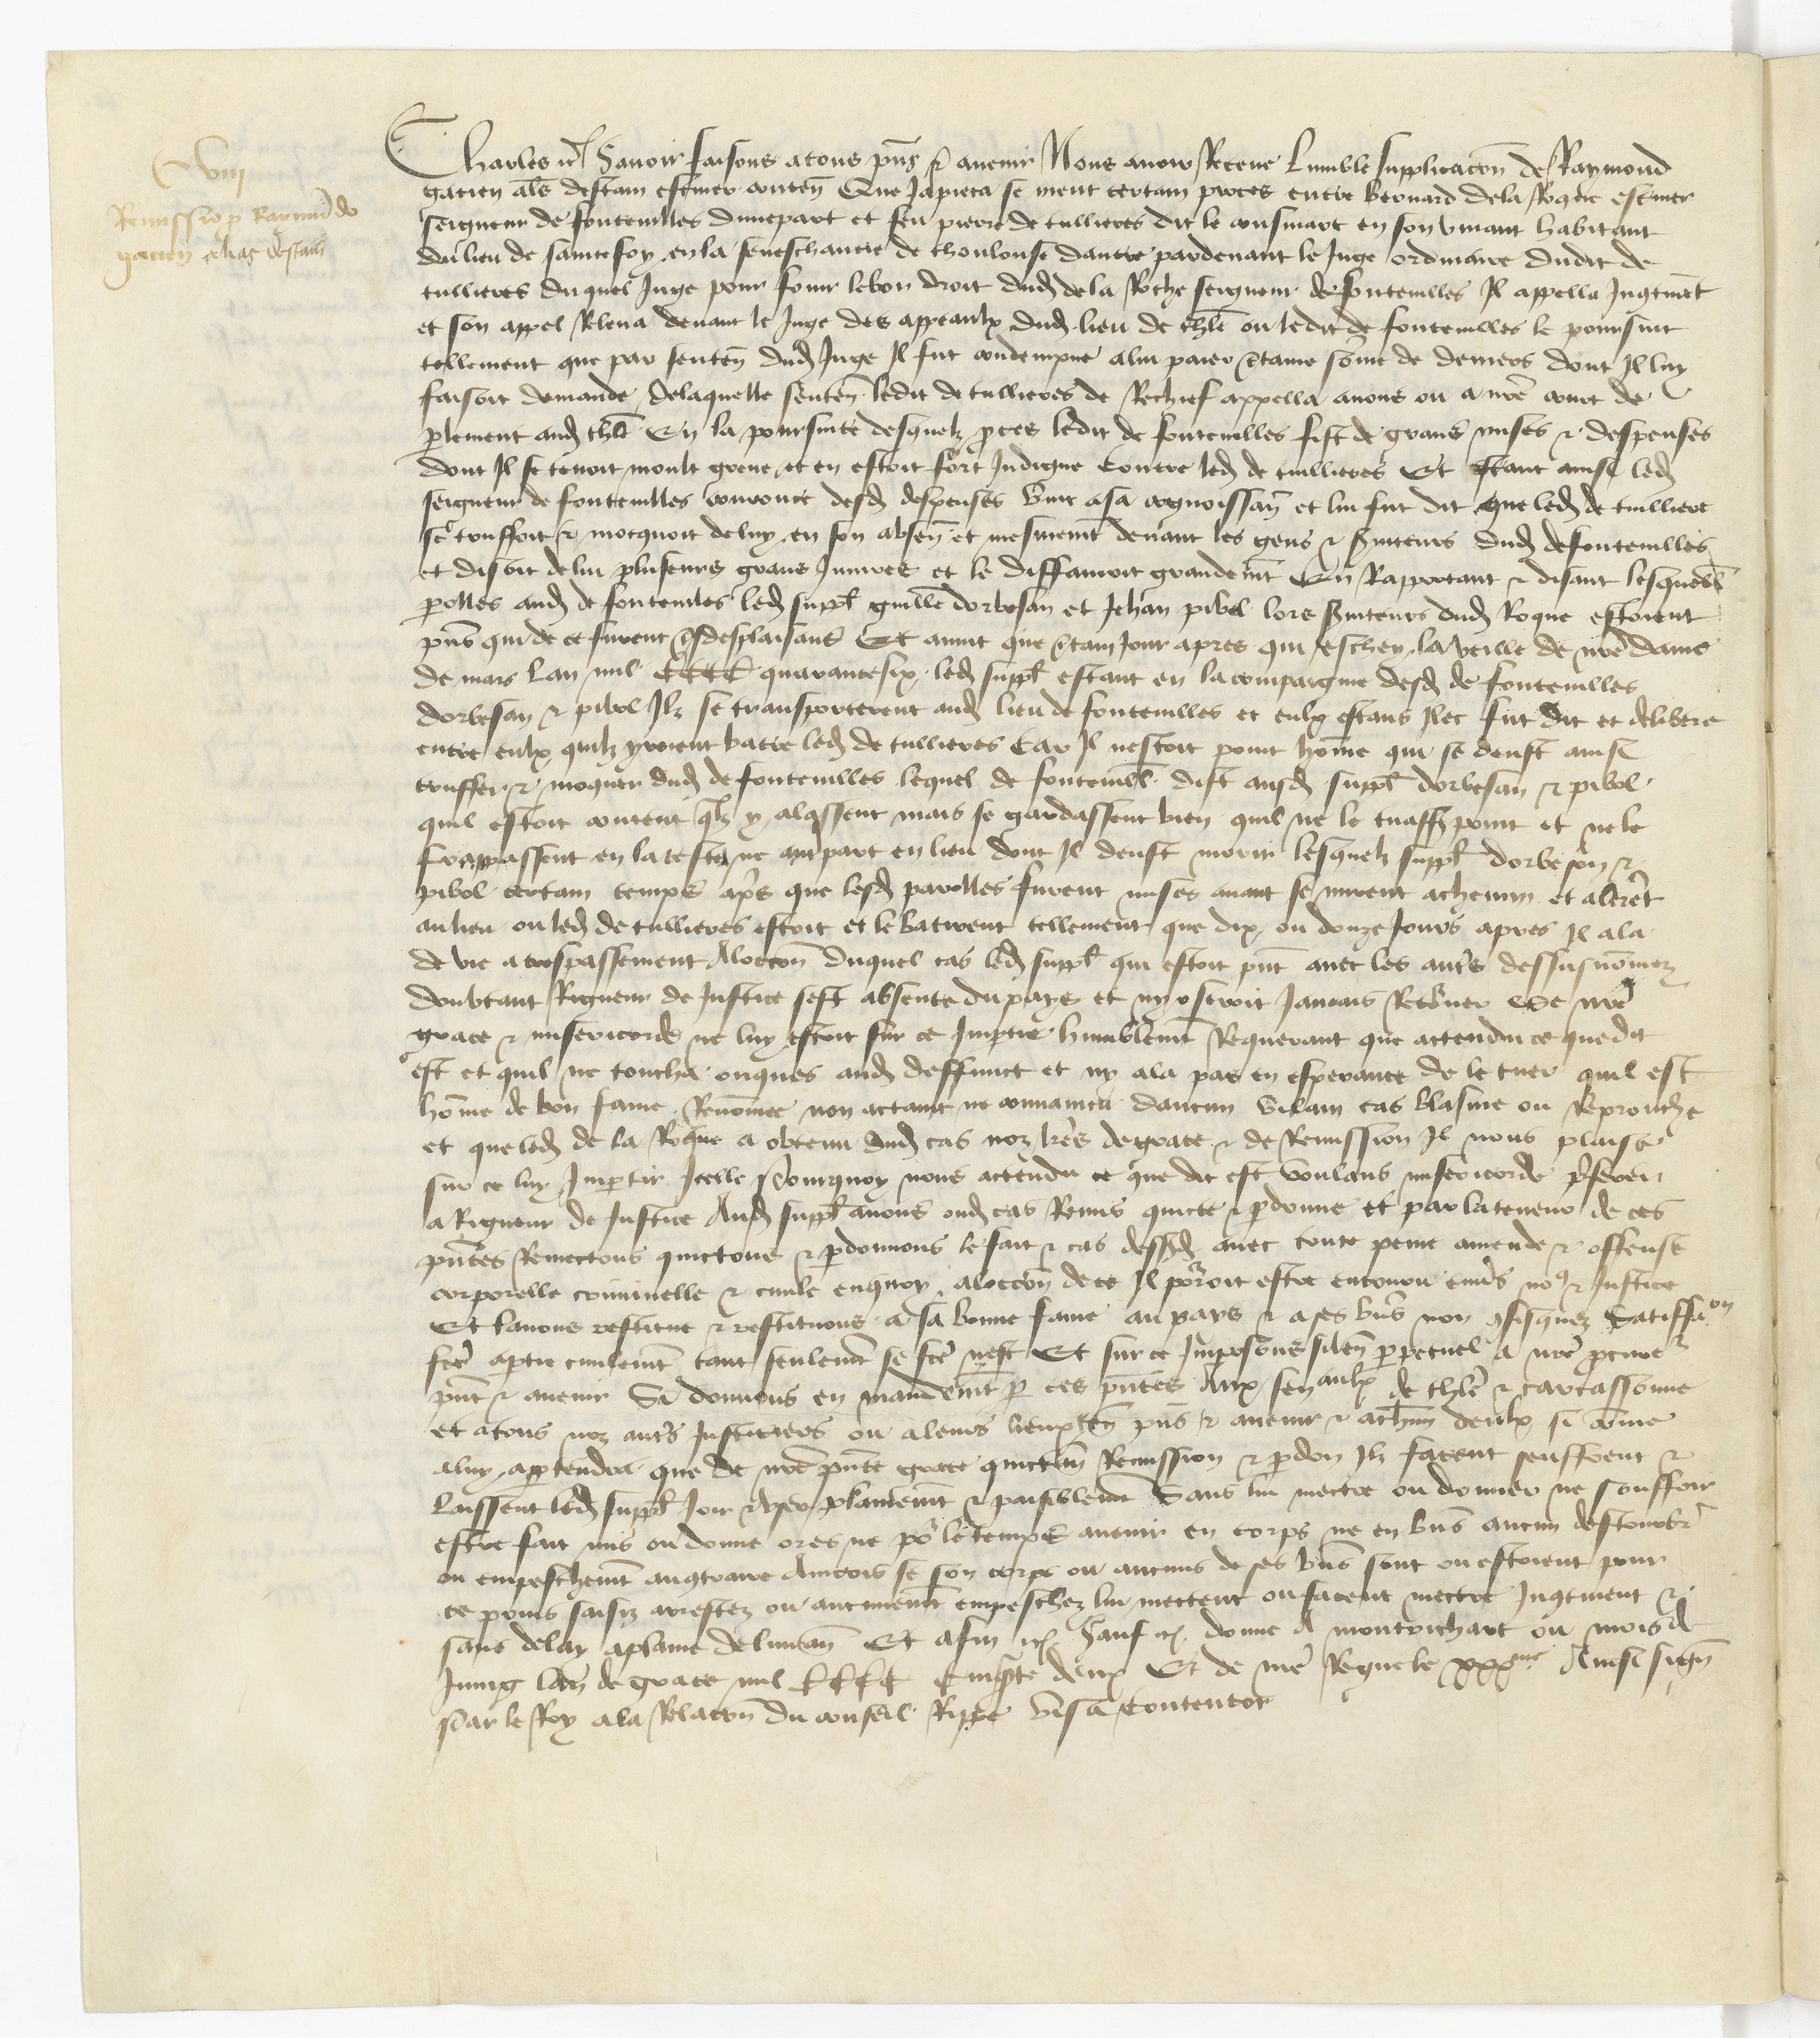 Cviii
Remissio pro Raymundo
gacien alias destain
Charles etc Savoir faisons a tous pns et avenir Nous avoir Receue lumble supplicacion de Raymond
gacien als destain escuier conten Que Ja pieca se meut certain proces entre Bernard de la Roque escuier
seigneur de fontenilles dune part et feu pierre de tullieres dit le cousinart en son vivant habitant
du lieu de saincte foy en la seneschaucie de tholouse dautre par devant le Juge ordinaire dudit de
tullieres duquel Juge pour souir le bon droit dud de la Roche seigneur de fontenilles Il appella Incontinent
et son appel Releva devant le Juge des appeaulx dud lieu de thle ou ledit de fontenilles le poursuit
tellement que par senten dud Juge Il fut condempne a lui paier certaine somme de deniers dont Il luy
faisoit demande De laquelle senten ledit de tullieres de Rechief appella a nous ou a nre court de
plement aud thle En la poursuite desquelz proces ledit de fontenilles fist de grans mises et despenses
dont Il se tenoit moult greve et en estoit fort Indigne contre led de tullieres Et estant ainsi led
seigneur de fontenilles courouce desd despenses vint a sa cognoissan et lui fut dit que led de tulliere
se trussoit et mocquoit de luy en son absen et mesmemt devant les gens et serviteurs dud de fontenilles
et disoit de lui pluseurs grans Injures et le diffamoit grandemt En Rapportant et disant lesquelles
polles aud de fontenilles led suppl guillme dorbesan et Jehan pibol lors serviteurs dud Roque estoient
pns qui de ce furent desplaisans Et avint que certain Jour apres qui escheu la veille de nre dame
de mars lan mil CCCC quarante six led suppl estant en la compaignie desd de fontenilles
dorbesan et pibol Ilz se transporterent aud lieu de fontenilles et eulx estans Ilec fut dit et delibere
entre eulx quilz yroient batre led de tullieres Car Il nestoit point homme qui se deust ainsi
trusser et moquer dud de fontenilles lequel de fontenill dist ausd suppl dorbesan et pibol
quil estoit content quilz y alassent mais se gardassent bien quil ne le tuassent point et ne le
frappassent en la teste ne aut part en lieu dont Il deust morir lesquelz suppl dorbesan et
pibol certain temps apres que lesd parolles furent mises avant se mirent a chemin et alerent
au lieu ou led de tullieres estoit et le batirent tellement que dix ou douze Jours apres Il ala
de vie a trespassement A loccon Duquel cas led suppl qui estoit pnt avec les autres dessusnommez
doubtant Rigueur de Justice sest absente du pays et ny oseroit Jamais Retourner se nre
grace et misericorde ne luy estoit sur ce Impartie humblemt Requerant que actendu ce que dit
est et quil ne toucha onques aud deffunct et ny ala pas en esperance de le tuer quil est
homme de bon fame Renommee non actaint ne convaincu daucun vilain cas blasme ou Reprouche
et que led de la Roque a obtenu dud cas noz lres de grace et de Remission Il nous plaise
sur ce luy Impartir Icelle Pourquoy nous actendu ce que dit est voulans misericorde preferer
a Rigueur de Justice Aud suppl avons oud cas Remis quicte et pdonne et par la teneur de ces
pntes Remectons quictons et pdonnons le fait et cas dessusd avec toute peine amende et offense
corporelle criminelle et civile en quoy a loccon de ce Il pourroit estre encouru envers nous et Justice
Et lavons restitue et restituons a sa bonne fame au pays et a ses biens non confisquez Satiffacion
fcte a partie civilemt tant seulemt se fcte nest Et sur ce Imposons silen perpetuel a nre procureur
pnt et avenir Si donnons en mandemt p ces pntes Aux senaulx de thle et carcassonne
et a tous noz autres Justiciers ou a leurs lieuxten pns et avenir et a chun deulx si comme
a luy apptendra que de nre pnte grace quictan Remission et pdon Ilz facent seuffrent et
laissent led suppl Joir et user plainemt et paisiblemt Sans lui mectre ou donner ne souffrir
estre fait mis ou donne ores ne pour le temps avenir en corps ne en biens aucun destourbr
ou empeschemt au contraire Aincois se son corps ou aucuns de ses biens sont ou estoient pour
ce prins saisiz arrestez ou aucunemt empeschez lui mectent ou facent mectre Incontinent et
sans delay a plaine delivran Et afin etc Sauf etc donne A montrichart ou mois de
Juing lan de grace mil CCCC Cinqte deux Et de nre Regne le xxxme Ainsi signe
Par le Roy a la Relacion du conseil Rippe Visa Contentor